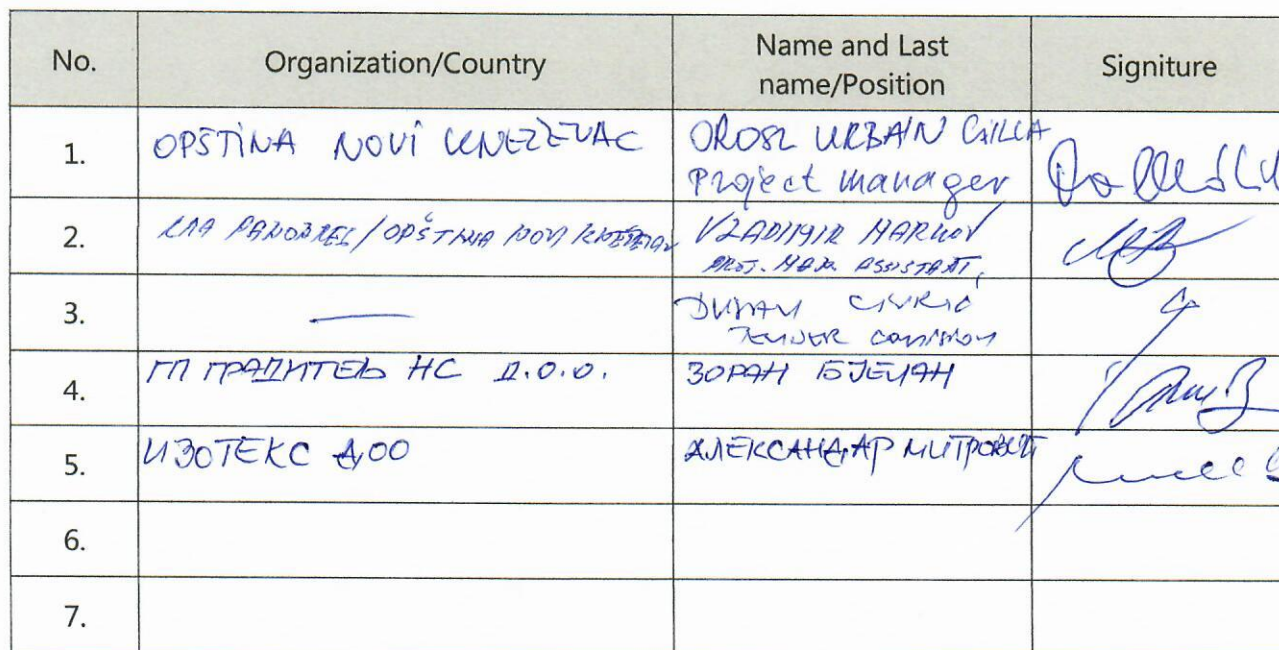 No. Organization/Country Name and Last name/Position Signiture
1. OPŠTINA NOVI KNEŽEVAC OROSZ URBAN CSILLA
Project manager
2. OPŠTINA NOVI KNEŽEVAC VLADIMIR MARKOV
PROJ. MAN. ASSISTANT,
3. — DUŠAN
TENDER
4. ГП ГРАДИТЕЉ НС Д.О.О. ЗОРАН БЈЕЛАН
5. ИЗОТЕКС ДОО АЛЕКСАНДАР МИТРОВИЋ
6.
7.